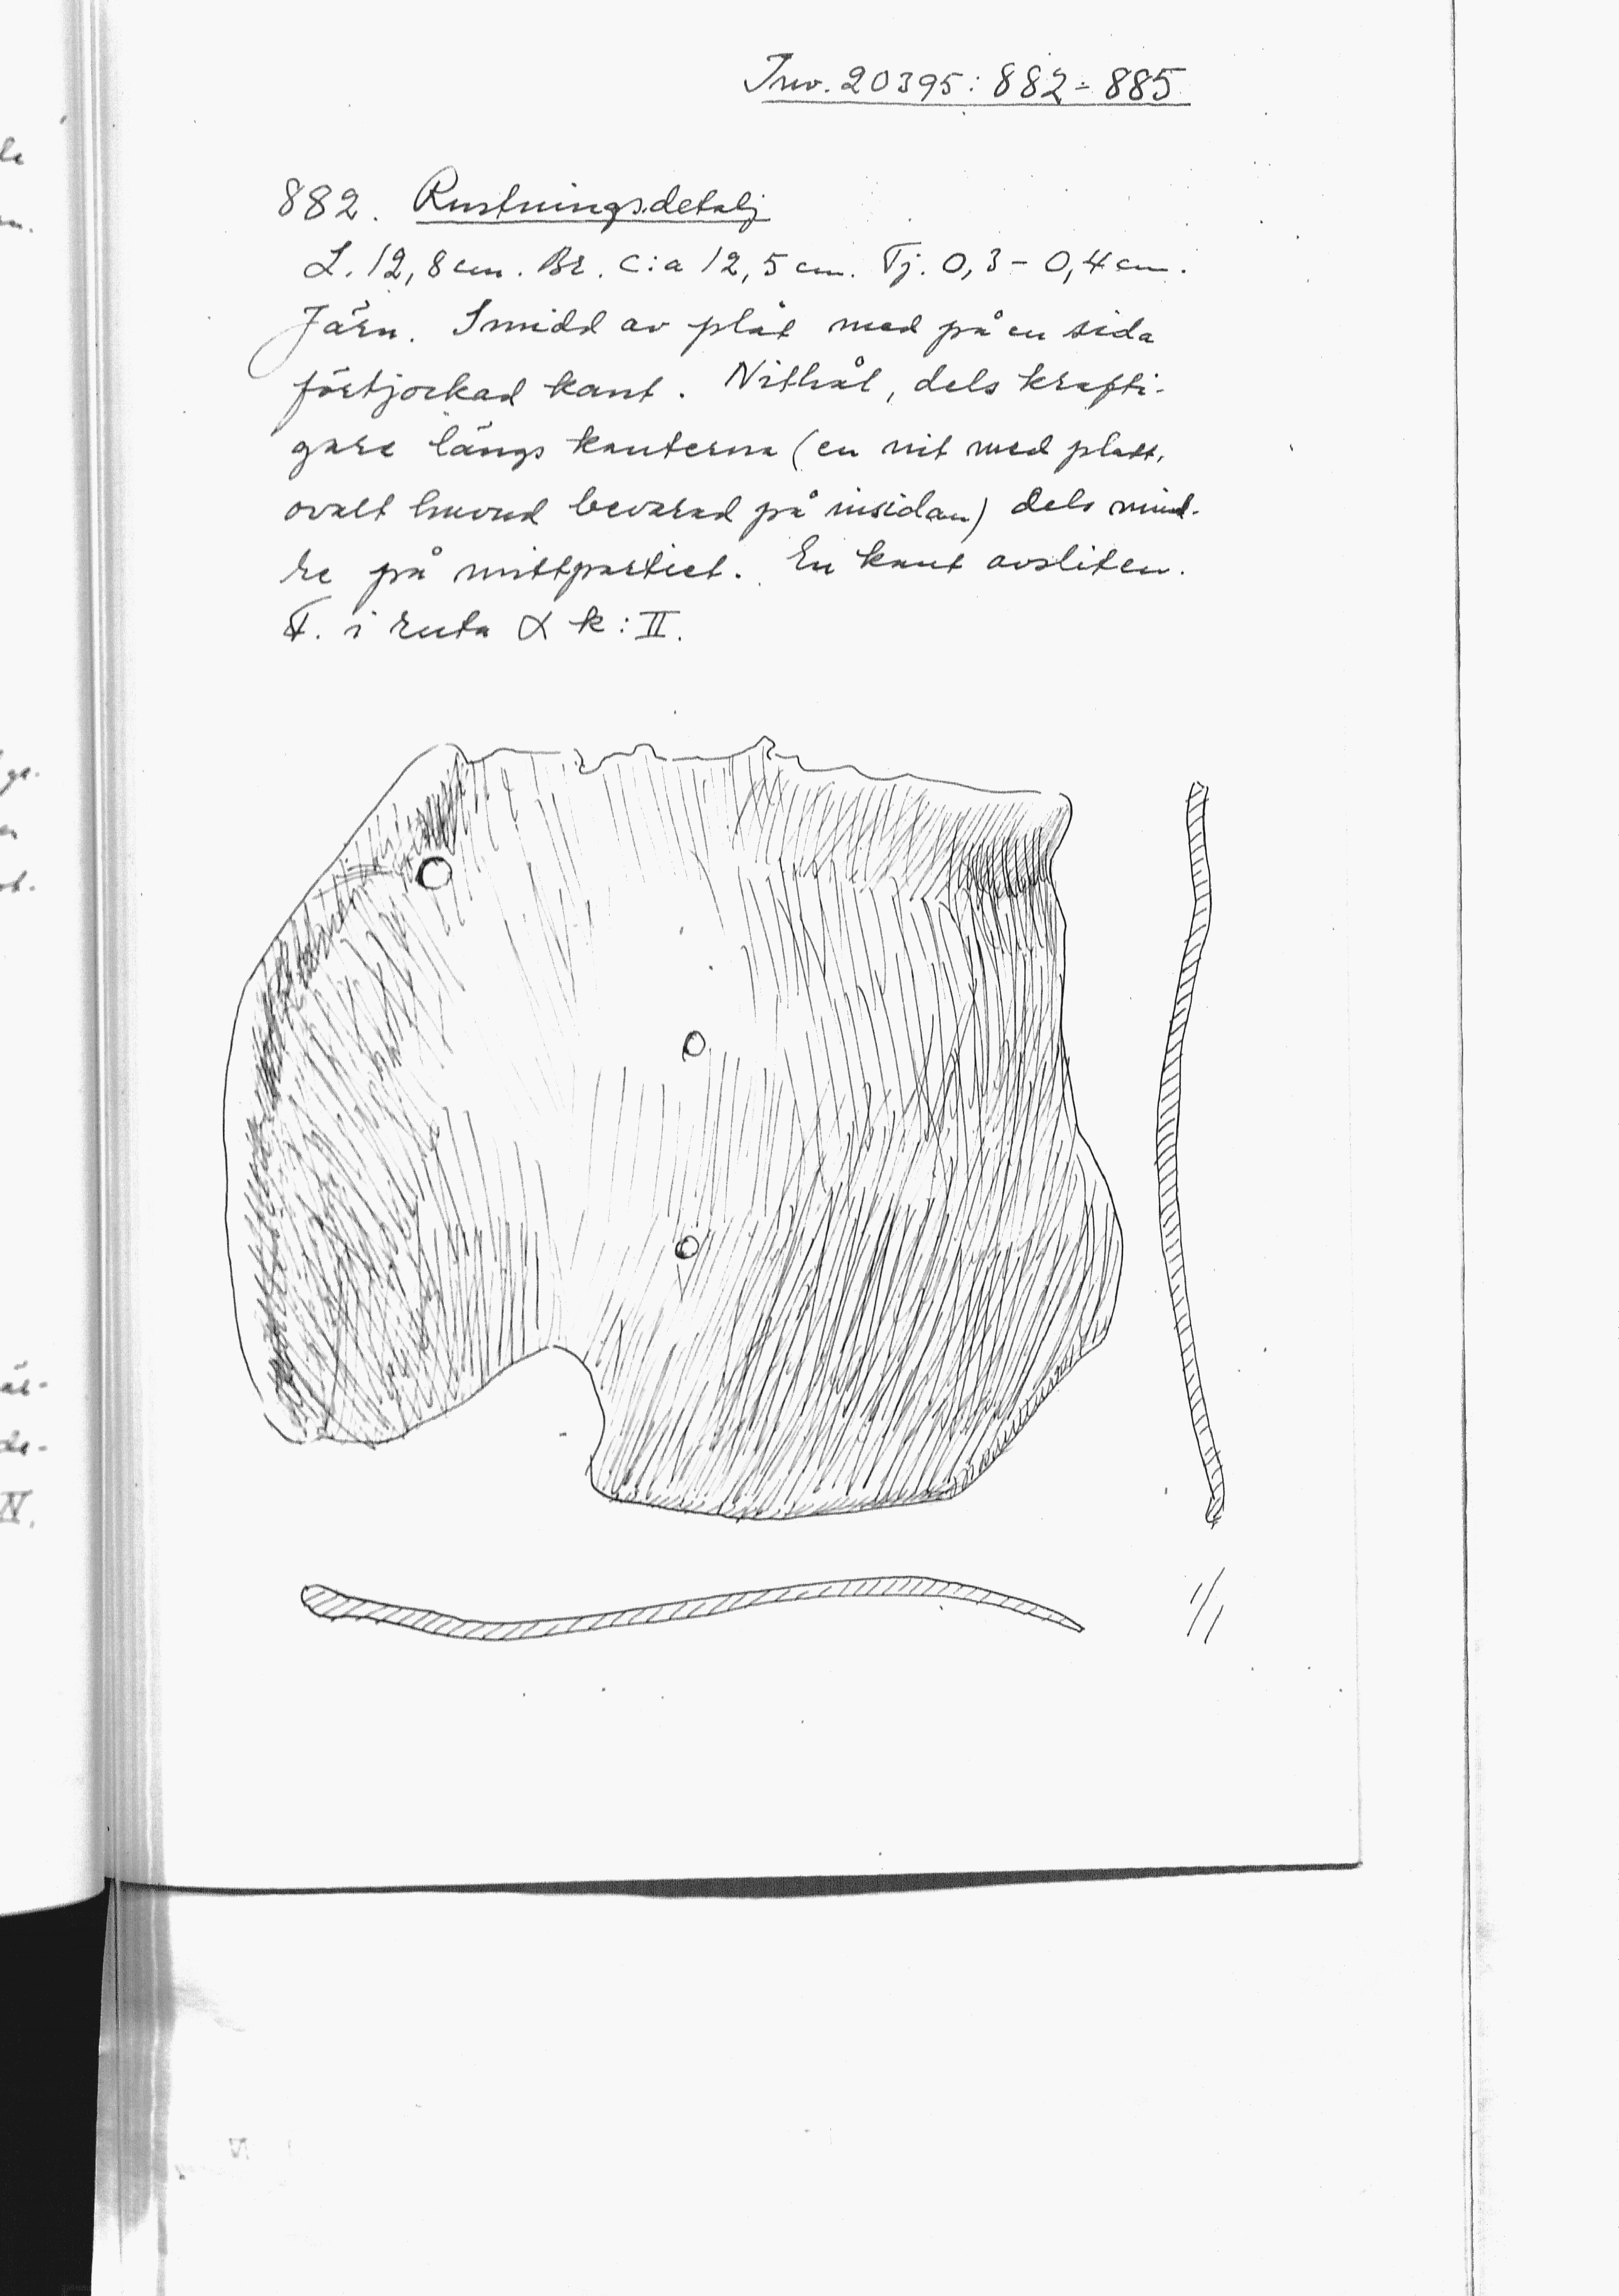 Inv. 20395: 882-885
882. Rustningsdetalj
L. 12,8 cm. Br. c:a 12,5 cm. Tj. 0,3-0,4 cm.
Järn. Smidd av plåt med på en sida
förtjockad kant. Nithål, dels krafti-
gare längs kanterna (en nit med platt,
ovalt huvud bevarad på insidan) dels mind-
re på mittpartiet. En kant avsliten.
F. i ruta α k:II.
1/1